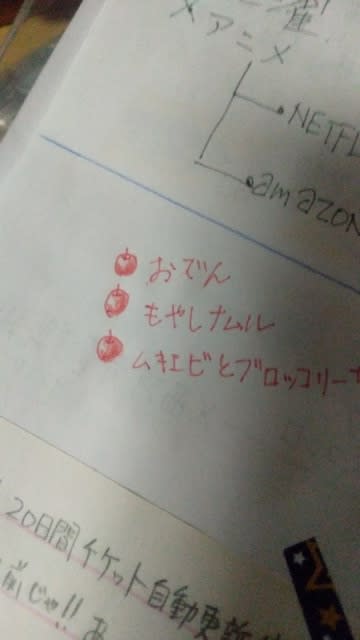 ×アニメ
NETFL
amazon
おでん
もやしナムル
ムキエビとブロッコリー
20日間チケット自動更新
前じゃ!! あ